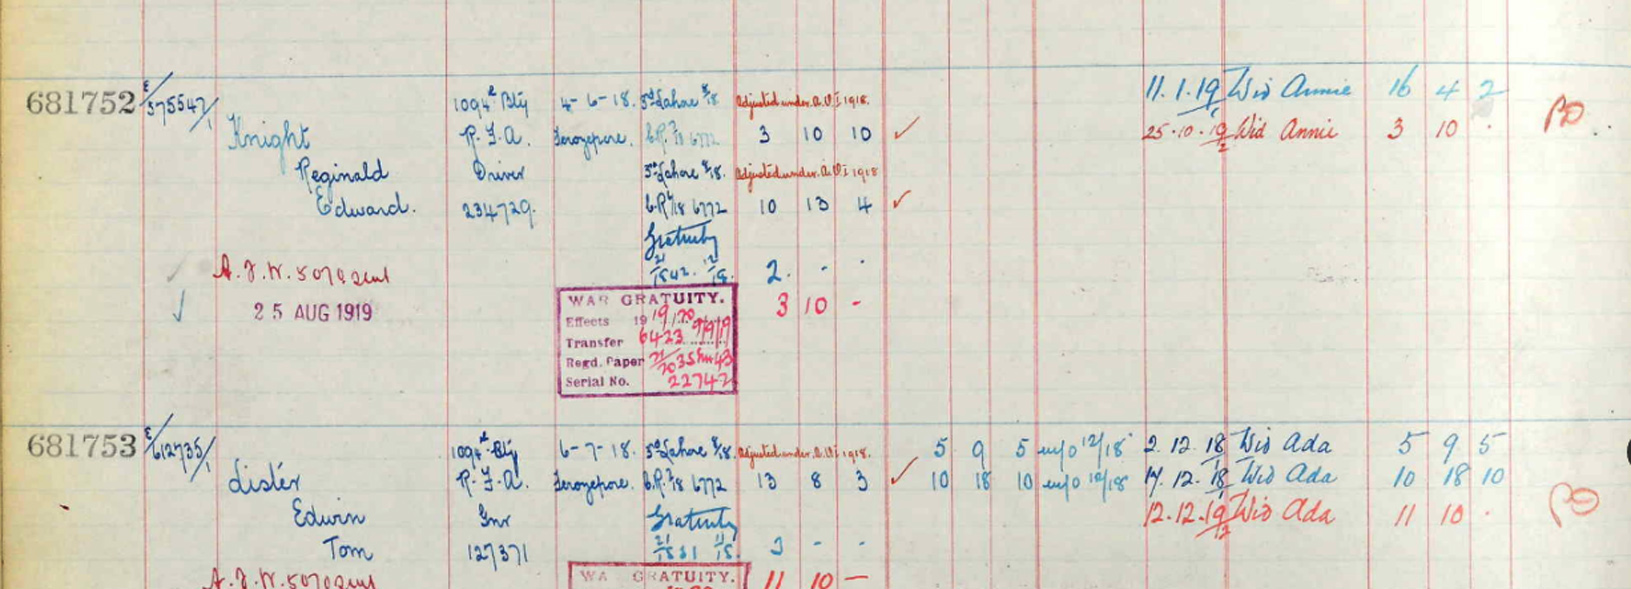 681752 E/575547/1 1094th Bty 4-6-18. 5th Lahore 8/18. Adjusted under A.O.I 1918. 11.1.19 Wid Annie 16 4 2
Knight R.F.A. Ferozepore. C.R. 6772 3 10 10 ✓ 25.10.19 Wid Annie 3 10 .
Reginald Driver Lahore 8/18. Adjusted under A.O.I 1918
Edward. 234729. C.R. 6772 10 13 4 ✓
Gratuity
A.F.W. 5070 sent 2. - -
25 AUG 1919 WAR GRATUITY. 3 10 -
Effects 1919/20
Transfer 6423 9/9/19
Regd. Paper
Serial No. 22742
681753 E/612735/1 1094th Bty 6-7-18. Lahore 8/18. Adjusted under A.O.I 1918. 5 9 5 m/o 12/18 2.12.18 Wid Ada 5 9 5
Lister R.F.A. Ferozepore. C.R. 6772 13 8 3 ✓ 10 18 10 m/o 12/18 17.12.18 Wid Ada 10 18 10
Edwin Gnr Gratuity 12.12.19 Wid Ada 11 10 .
Tom 127371 3 - -
A.F.W. 5070 sent WAR GRATUITY. 11 10 -